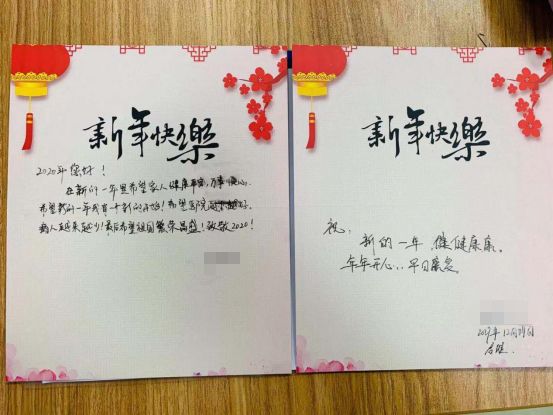 新年快樂
2020年您好！
在新的一年里希望家人健康平安，万事顺心。
希望新的一年我有一个新的开始！希望医院
病人越来越少！最后希望祖国繁荣昌盛！致敬2020！
新年快樂
祝：
新的一年 健健康康。
年年开心，早日康复
2019年12月29日